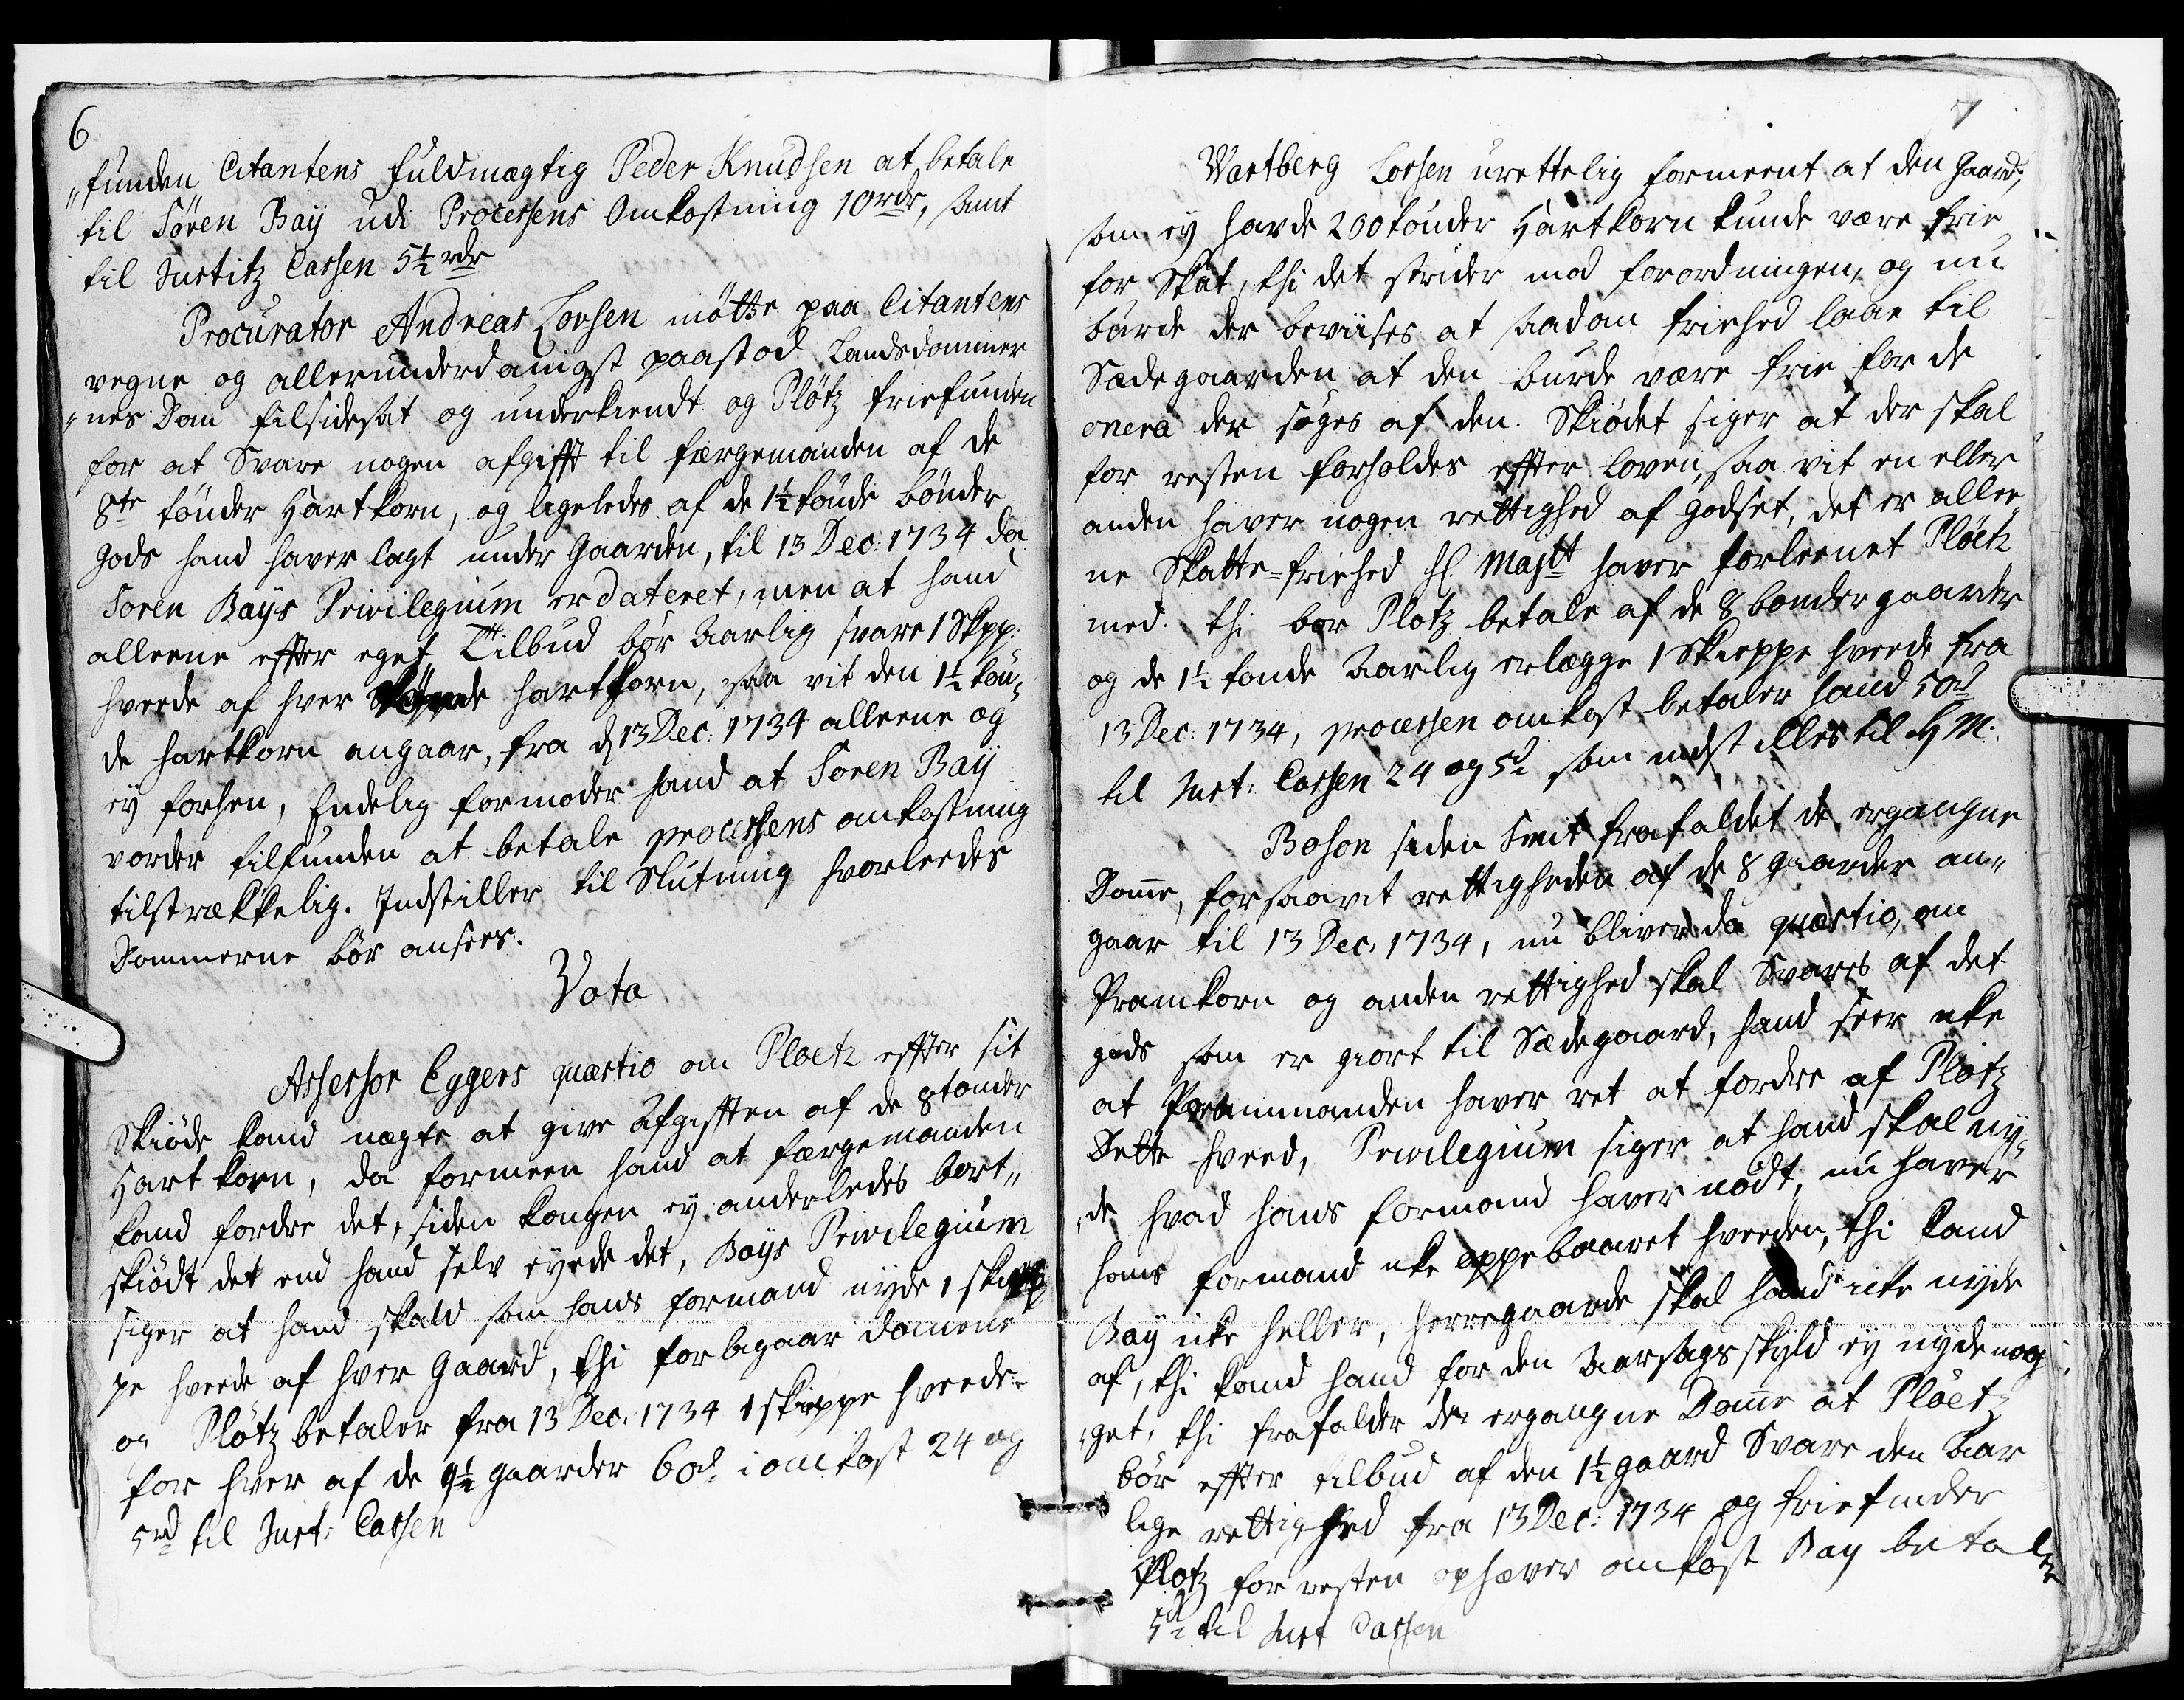 6
"funden Citantens fuldmægtig Peder Knudsen at betale
til Søren Baÿ udi Processens Omkostning 10 rdr, samt
til Justitz Cassen 5½ rdr
Procurator Andreas Lovsen mötte paa Citantens
vegne og allerunderdanigst paastod Landsdommer
"nes Dom tilsidesat og underkiendt og Plötz friefunden
for at Svare nogen afgifft til færgemanden af de
8te tönder Hartkorn, og ligeledes af de 1½ tönde bönder
gods hand haver lagt under Gaarden, til 13 Dec: 1734 da
Soren Baÿs Privilegium er dateret, men at hand
alleene effter eget Tilbud bör Aarlig svare 1 Skpp:
hveede af hver tönde hartkorn, saa vit den 1½ tön-
de hartkorn angaar, fra d 13 Dec: 1734 alleene og
ey forhen, Endelig formoder hand at Soren Baÿ
vorder tilfunden at betale processens omkostning
tilstrækkelig. Indstiller til Slutning hvorleedes
Dommerne bör ansees.
Vota
Assessor Eggers quæstio om Ploetz effter sit
Skiöde kand nægte at give Afgifften af de 8 tonder
Hart korn, da formeen hand at færgemanden
kand fordre det, siden kongen ey anderledes bort"
skiödt det end hand selv eyede det, Bays Privilegium
siger at hand skald som hans formand nyde 1 skiep
pe hveede af hver Gaard, thi forbigaar domene
og Plötz betaler fra 13 Dec: 1734 1 skieppe hveede
for hver af de 9½ gaarder 60d. i omkost 24 og
5 rd til Just: Cassen
7
Wartberg Lovsen urettelig formeent at den Gaard,
som ey havde 200 tönder Hartkorn kunde være frie
for Skat, thi det strider mod forordningen, og nu
burde der beviises at saadan friehed laae til
Sædegaarden at den burde være frie for de
onera der söges af den. Skiödet siger at der skal
for resten forholdes effter loven, saa vit en eller
anden haver nogen rettighed af godset, det er allee
ne Skatte-friehed H Maytt haver forleenet Ploetz
med. thi bør Plotz betale af de 8 bondergaarder
og de 1½ tonde Aarlig erlægge 1 Skieppe hveede fra
13 Dec: 1734, processen omkost betaler hand 50d
til Just: Cassen 24 og 5d som indstilles til H M.
Boson siden Smit frafaldet de ergangne
Dom̄e, forsaavit rettigheden af de 8 gaarder an"
gaar til 13 Dec: 1734, nu bliver da quæstio, om
Pramkorn og anden rettighed skal Svares af det
gods som er giort til Sædegaard, hand seer ikke
at Prammanden haver ret at fordre af Plötz
Dette hveed, Privilegium siger at hand skal ny-
"de hvad hans formand haver nödt, nu haver
hans formand ikke oppebaaret hveeden, thi kand
Baÿ icke heller, herregaarde skal hand icke nyde
af, thi kand hand for den Aarsags skyld ey nyde nog
"get, thi frafalder de ergangne Dom̄e at Plöetz
bör effter tilbud af den 1½ gaard Svare den Aar
lige rettighed fra 13 Dec: 1734 og friefinder
Plotz for resten ophæver omkost Bay betaler
5d til Just Cassen